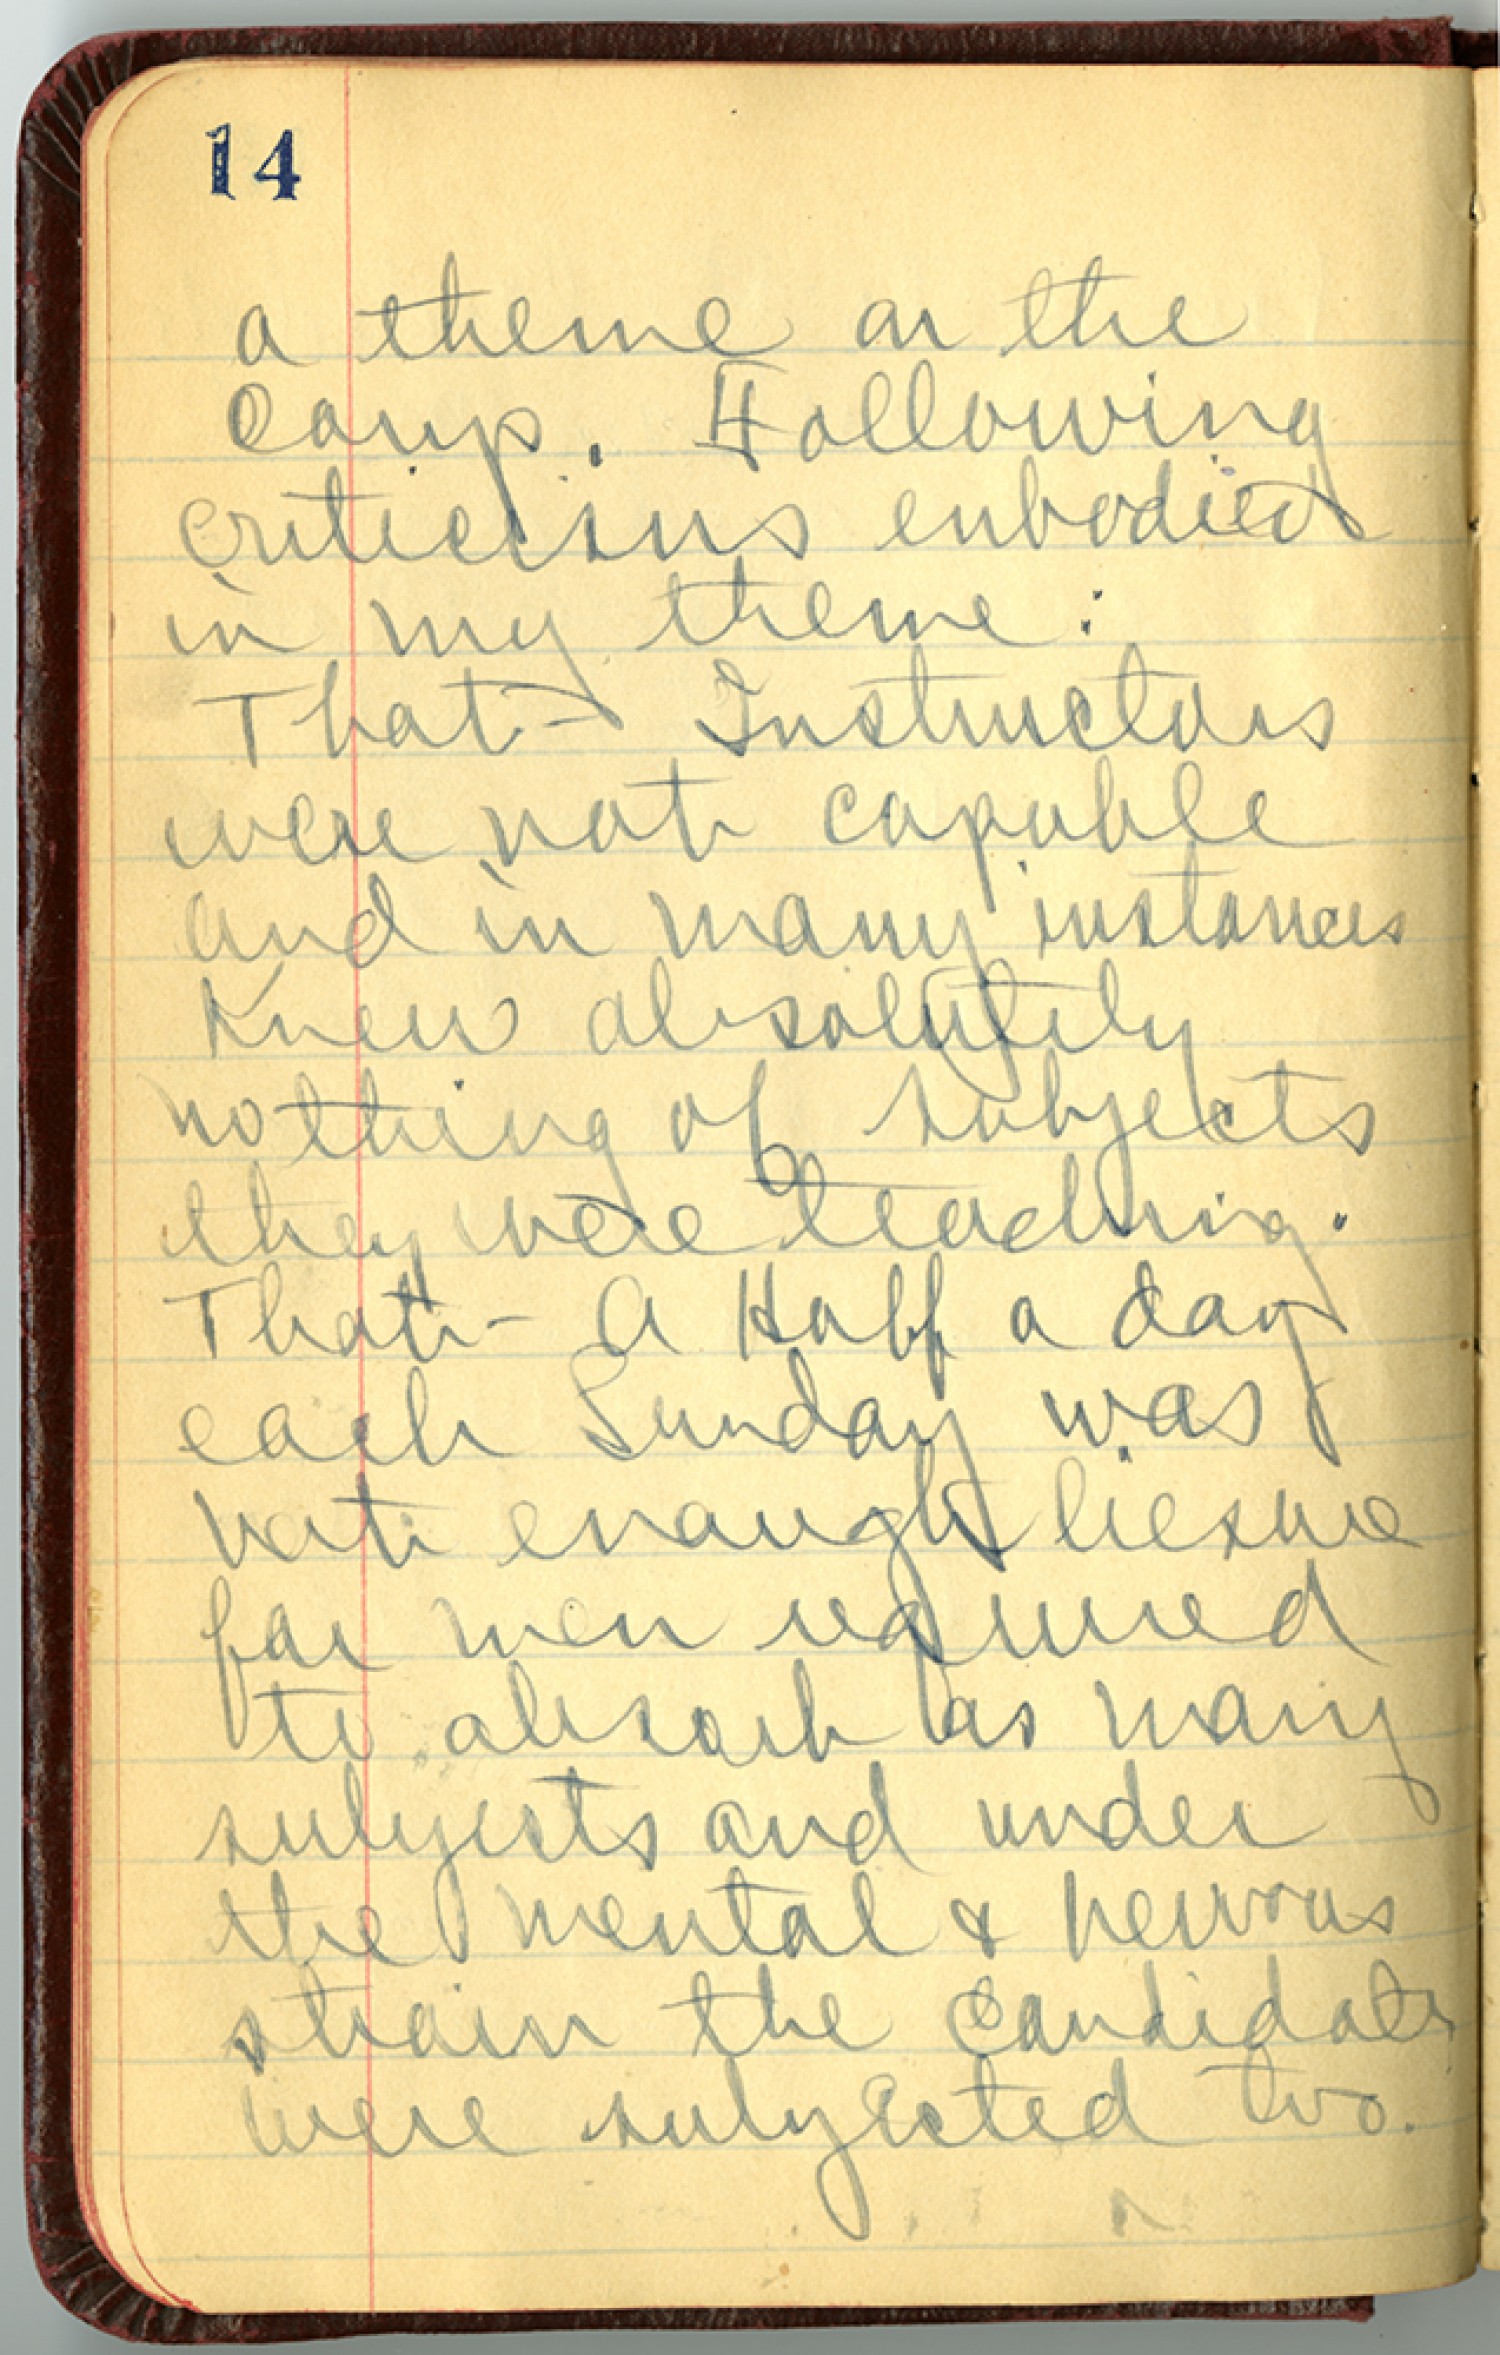 14
a theme on the
Camp. Following
criticisms enbodied
in my theme:
That- Instructors
were not capable
and in many instances
Knew absolutely
nothing of subjects
they were teaching.
That- A Half a day
each Sunday was
not enough liesure
for men required
to absorb as many
subjects and under
the mental & nervous
strain the candidates
were subjected two.